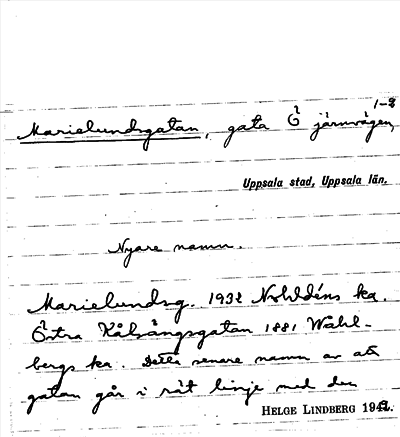 1-2
Marielundsgatan, gata Ö järnvägen,
Uppsala stad, Uppsala län.
Nyare namn.
Marielundsg. 1932 Nohldéns ka.
Östra Kålsängsgatan 1881 Wahl-
bergs ka. Detta senare namn av att
gatan går i rät linje med den
HELGE LINDBERG 1942.